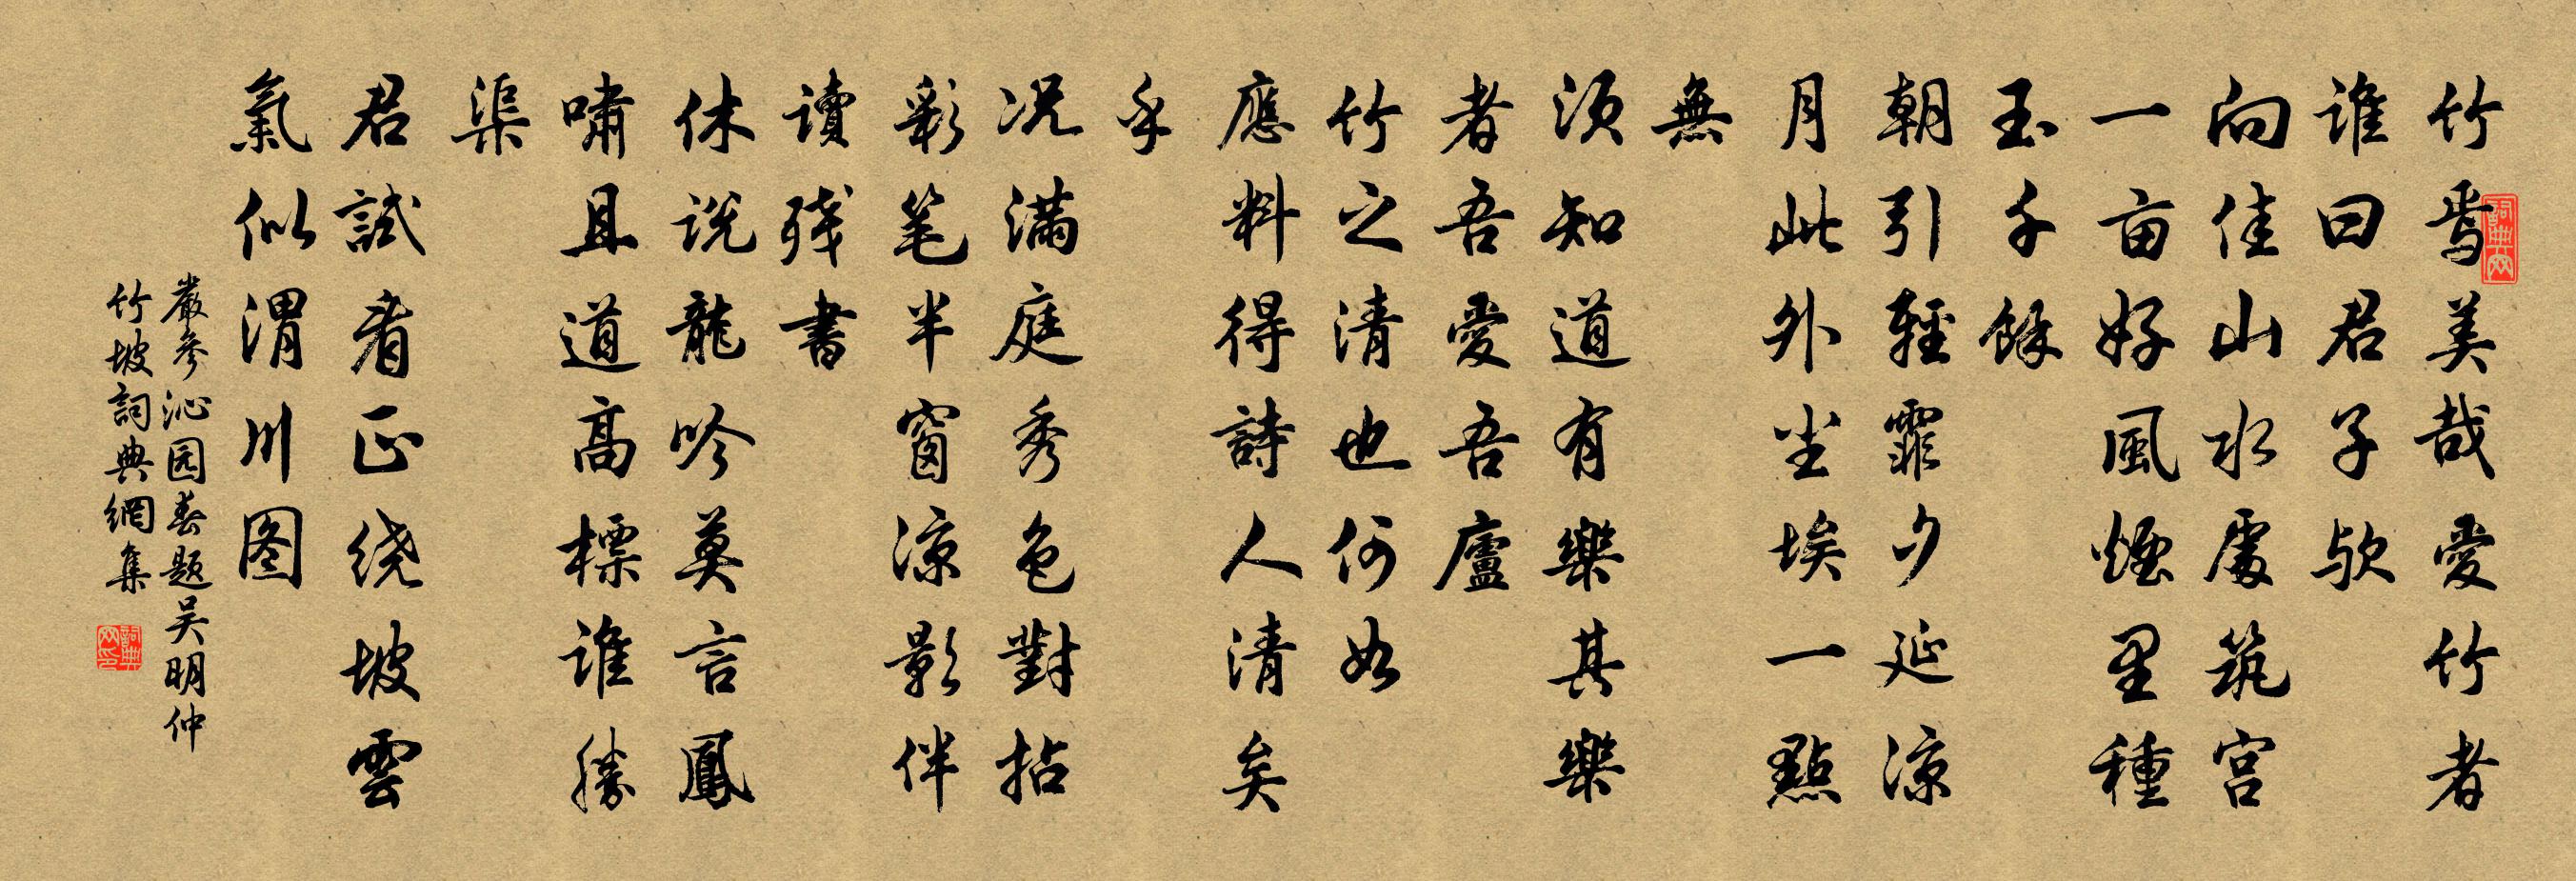 竹焉美哉愛竹者
谁曰君子欤
向佳山水處筑宫
一亩好風煙里種
玉千餘
朝引輕霏夕延凉
月此外尘埃一點
無
須知道有樂其樂
者吾愛吾廬
竹之清也何如
應料得詩人清矣
乎
况滿庭秀色對拈
彩笔半窗凉影伴
讀残書
休说龍吟莫言鳳
嘯且道高標谁勝
渠
君試看正绕坡雲
氣似渭川图
嚴參沁园春题吴明仲
竹坡詞典網集
詞典网
詞典网印